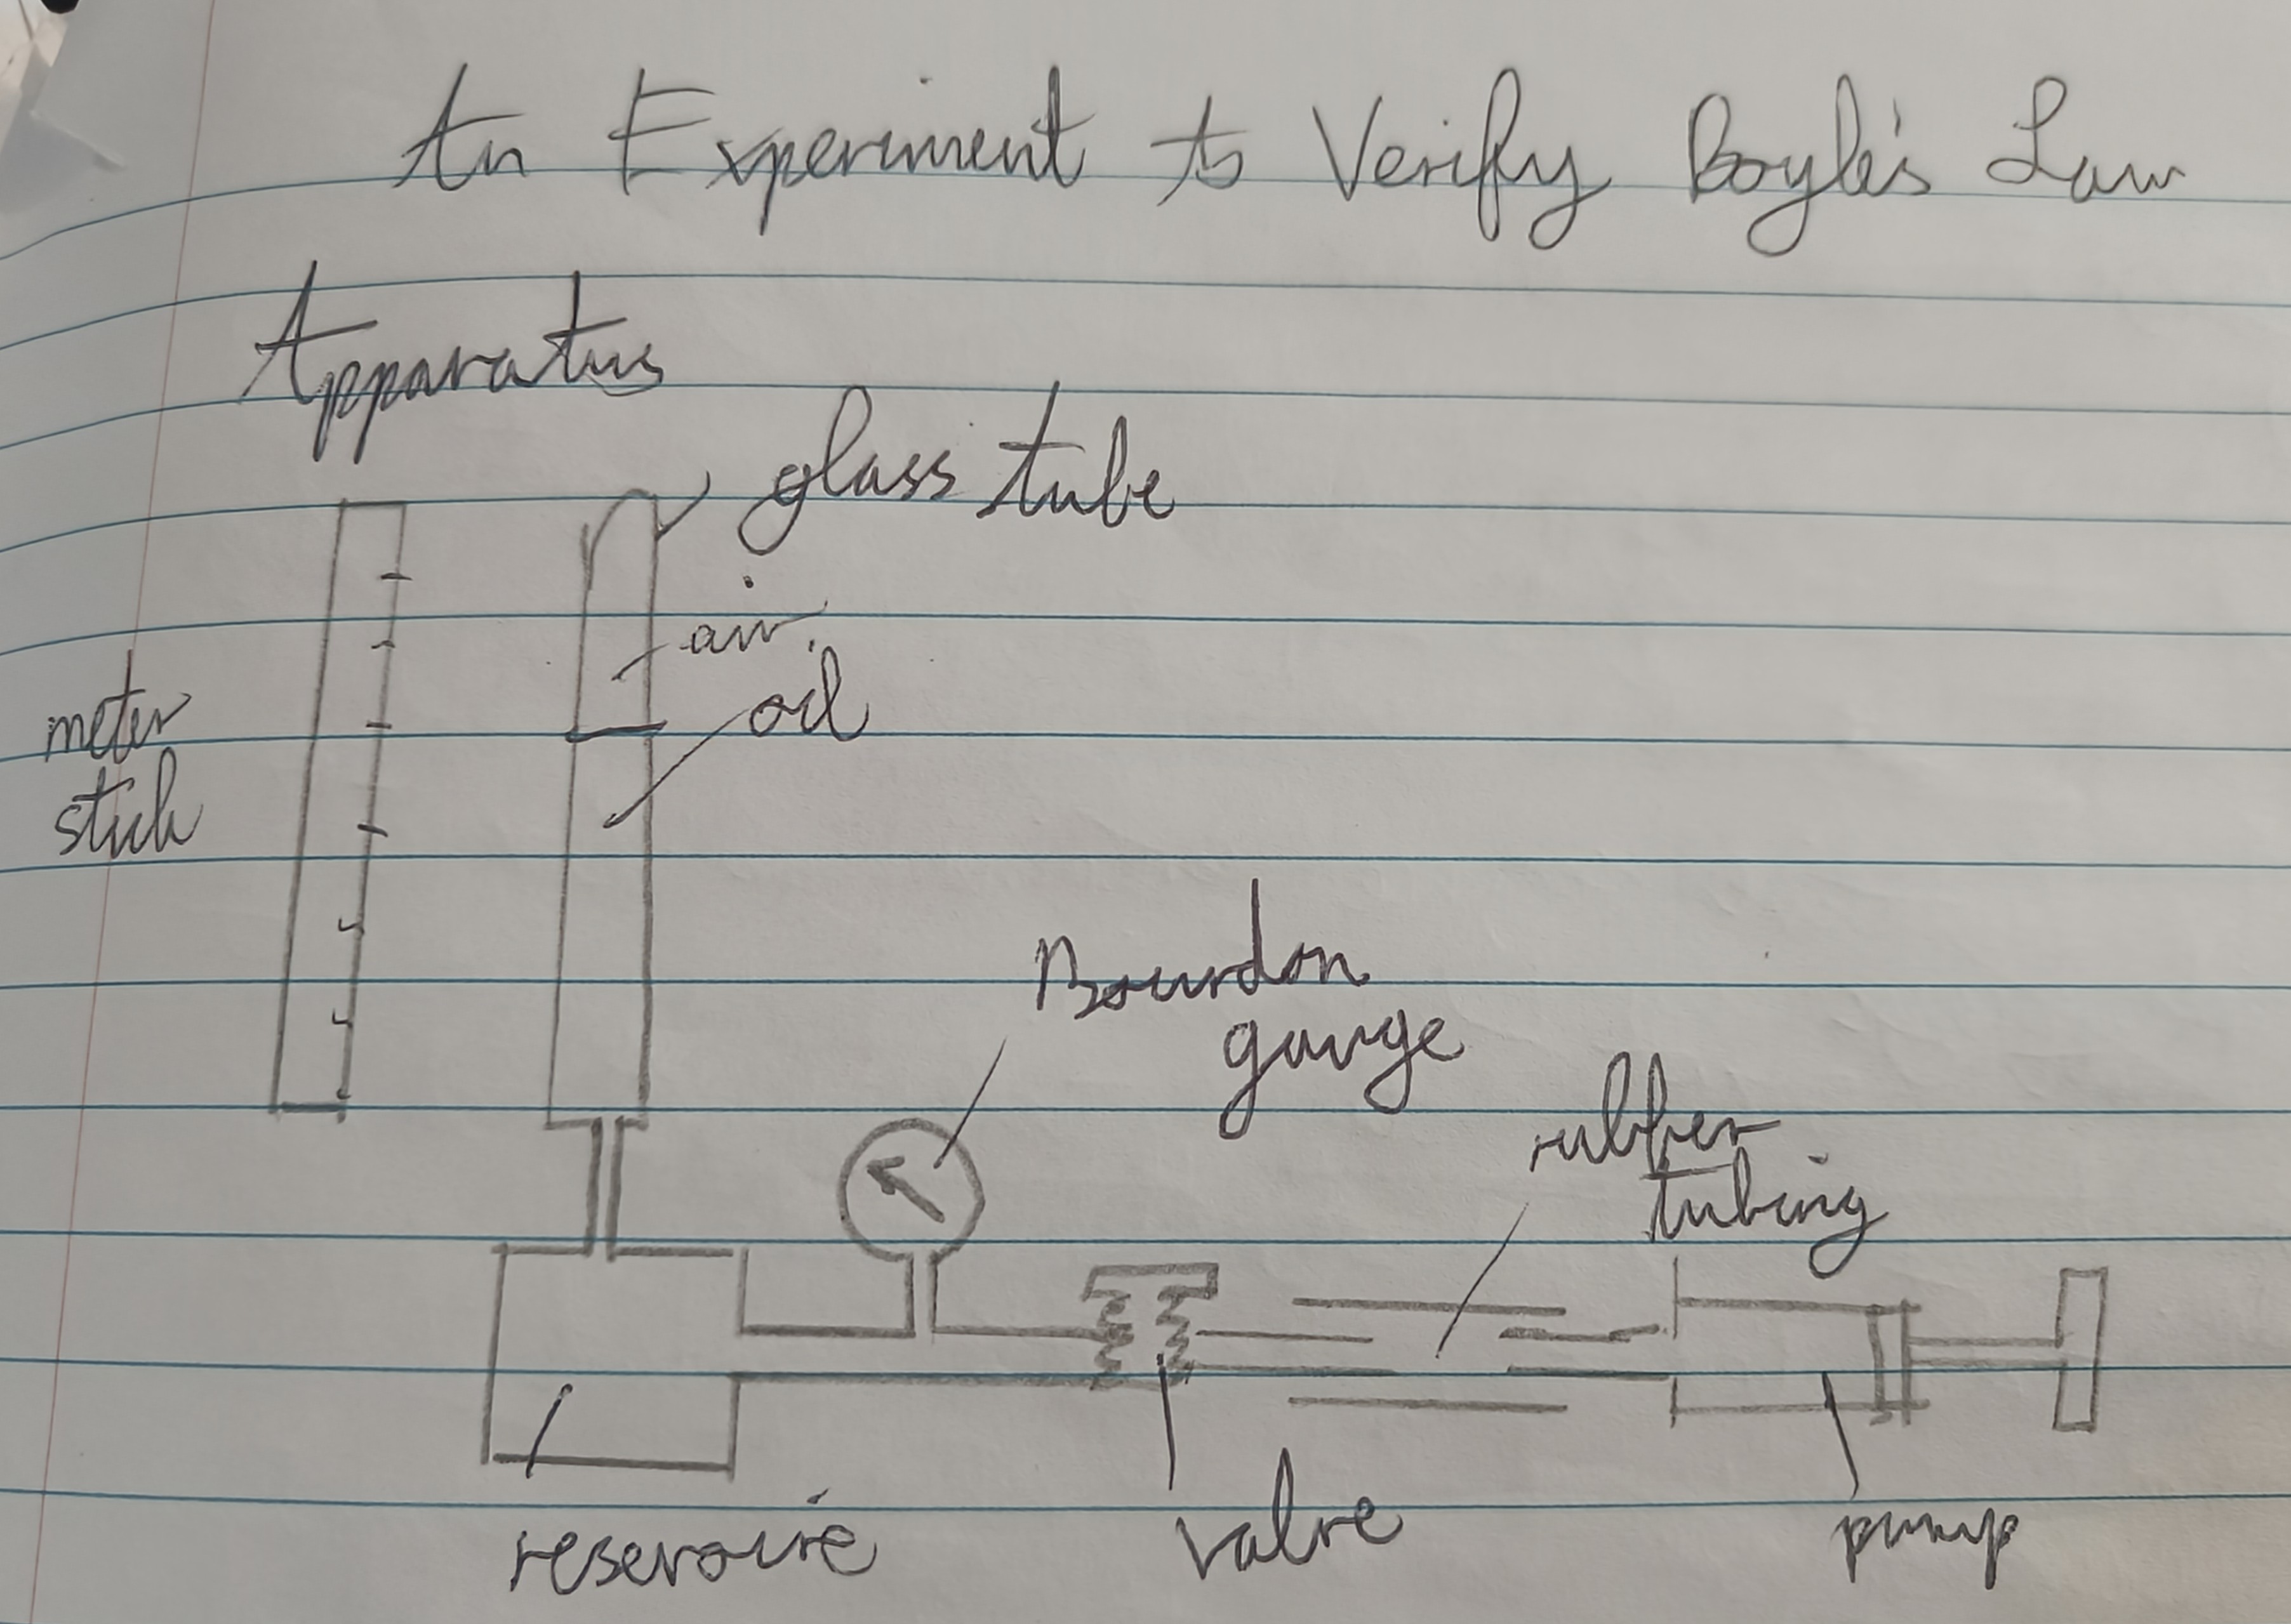 An Experiment to Verify Boyle's Law
Apparatus
glass tube
air
oil
meter
stick
Bourdon
gauge
rubber
tubing
reservoire
valve
pump